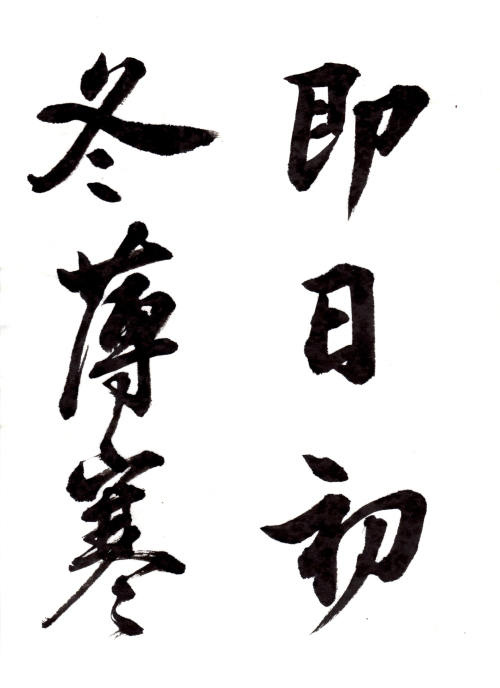 即日初
冬薄寒